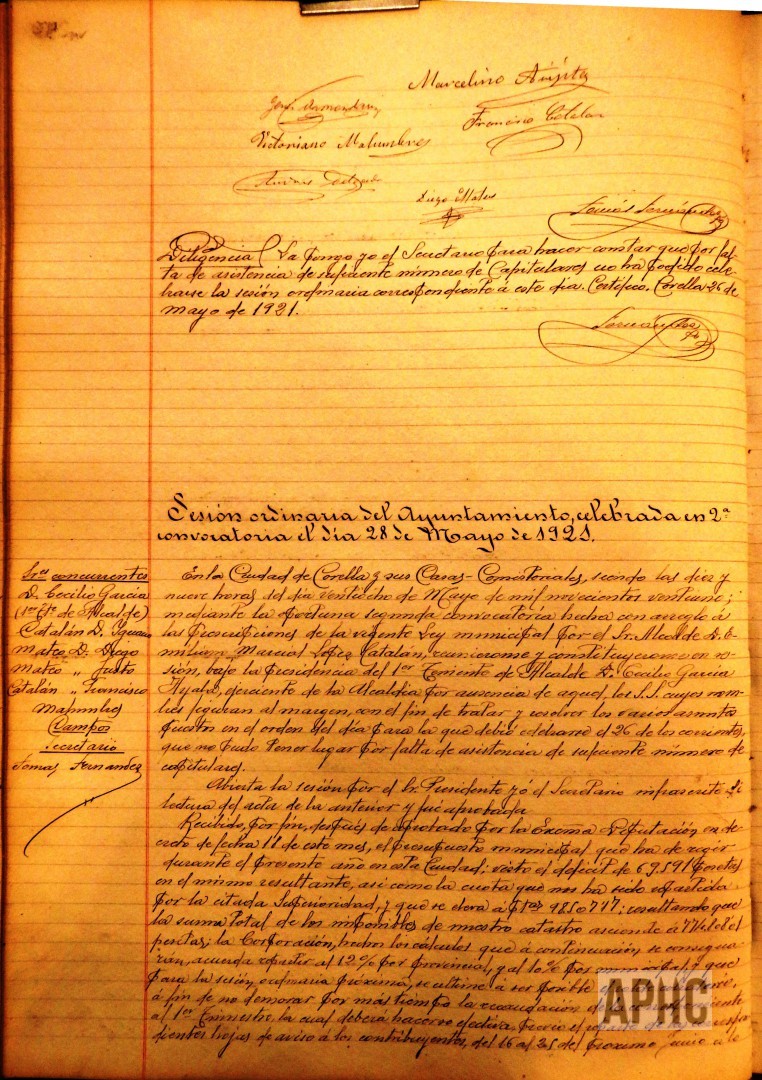 Marcelino
Francisco Catalan
Victoriano Malumbres
Diego Mateo
Tomás Fernández
Diligencia / La pongo yo el Secretario para hacer constar que por fal-
ta de asistencia de suficiente número de Capitulares no ha podido cele-
brarse la sesión ordinaria correspondiente á este dia. Certifico. Corella 26 de
mayo de 1921.
Fernández
Sesión ordinaria del Ayuntamiento, celebrada en 2ª
convocatoria el día 28 de Mayo de 1921.
Sres concurrentes
D. Cecilio Garcia
(1er Tte de Alcalde)
Catalán D.
Mateo D. Diego
Mateo „ Justo
Catalán „ Francisco
Malumbres
Campos
Secretario
Tomas Fernandez
En la Ciudad de Corella y sus Casas-Consistoriales, siendo las diez y
nueve horas del dia veintiocho de Mayo de mil novecientos veintiuno;
mediante la oportuna segunda convocatória hecha con arreglo á
las prescripciones de la vigente Ley municipal por el Sr. Alcalde D. E-
miliano Marcial López Catalán, reunieronse y constituyeronse en se-
sión, bajo la Presidencia del 1er Teniente de Alcalde D. Cecilio Garcia
ejerciente de la Alcaldia por ausencia de aquel, los S.S. cuyos nom-
bres figuran al margen, con el fin de tratar y resolver los varios asuntos
puestos en el orden del dia para la que debió celebrarse el 26 de los corrientes,
que no pudo tener lugar por falta de asistencia de suficiente número de
capitulares.
Abierta la sesión por el Sr. Presidente yó el Secretario infrascrito dí
lectura del acta de la anterior y fué aprobada.
Recibido, por fin, después de aprobado por la Excma Diputación en de-
creto de fecha 11 de este mes, el presupuesto municipal que ha de regir
durante el presente año en esta Ciudad: visto el déficit de 69.591 pesetas
en el mismo resultante, así como la cuota que nos ha sido repartida
por la citada Superioridad, y que se eleva á Ptas 98507'17; resultando que
la suma total de los imponibles de nuestro catastro asciende á
pesetas; la Corporación, hechos los cálculos que á continuación se consigna-
rán, acuerda repartir al 12% por provincial, y al 10% por municipal y que
para la sesión ordinaria próxima, se ultime á ser posible
á fin de no demorar por más tiempo la recaudación
al 1er Trimestre, la cual deberá hacerse efectiva, prévio el reparto de las correspon-
dientes hojas de aviso á los contribuyentes, del 16 al 25 de próximo junio á le
APHC